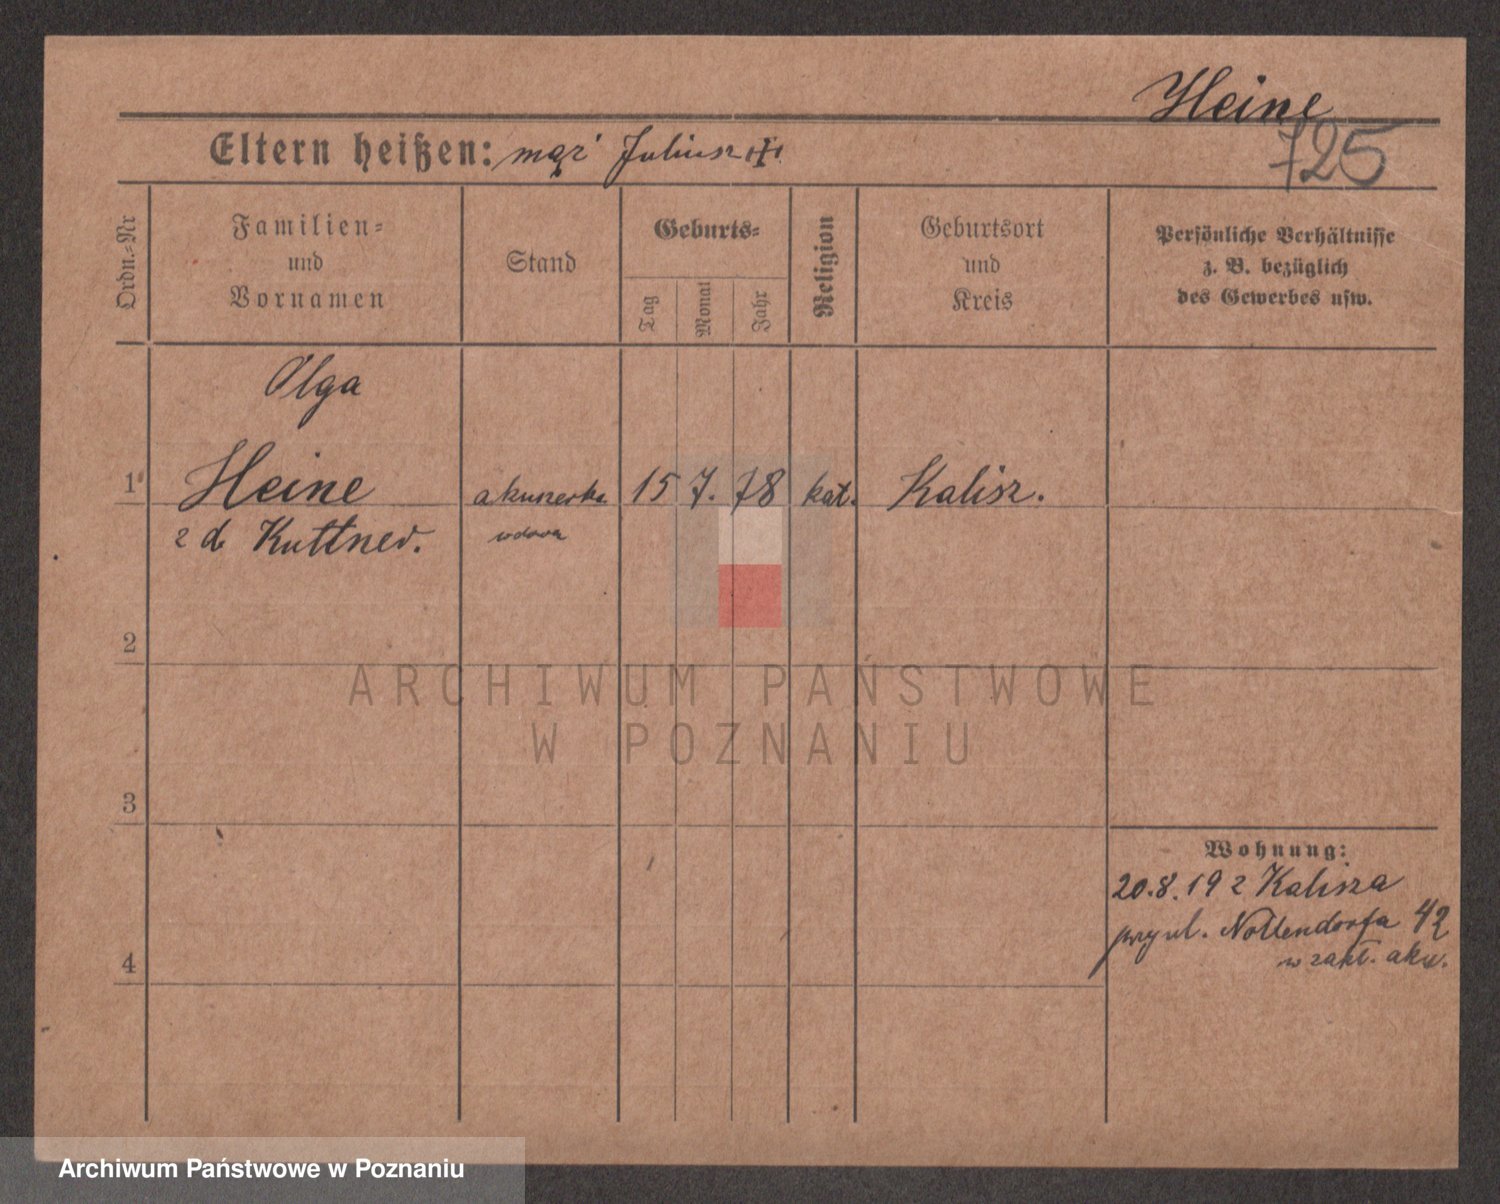 Heine
725
Eltern heißen: mąż Juliusz
Ordn.-Nr
Familien-
und
Vornamen
Stand
Geburts-
Tag
Monat
Jahr
Religion
Geburtsort
und
Kreis
Persönliche Verhältnisse
z. B. bezüglich
des Gewerbes usw.
Olga
1 Heine akuszerka 15 7. 78 kat. Kalisz.
z d Kuttner. wdowa
2
3
4
Wohnung:
20.8.19 z Kalisza
przy ul. Nollendorfa 42
w zakł. aku.
ARCHIWUM PAŃSTWOWE
W POZNANIU
Archiwum Państwowe w Poznaniu